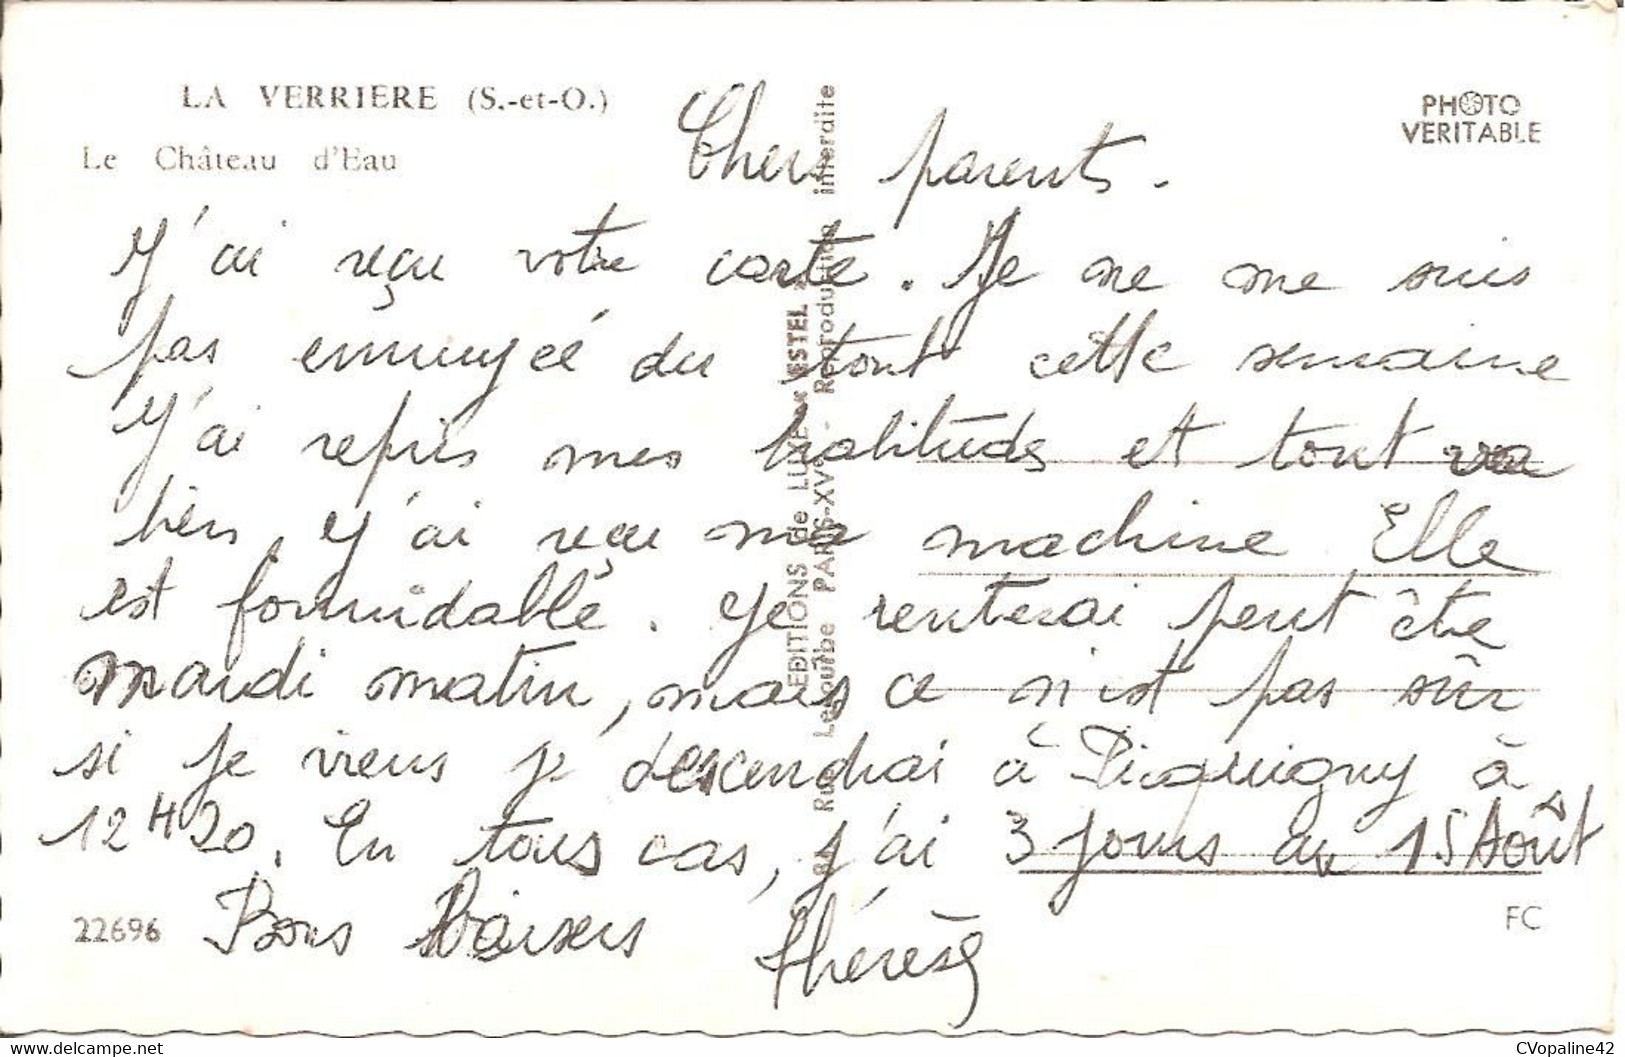 LA VERRIERE (S.-et-O.)
Le Château d'Eau
PHOTO
VERITABLE
Chers parents.
J'ai reçu votre carte. Je ne me suis
pas ennuyée du tout cette semaine
J'ai repris mes habitudes et tout va
bien, J'ai reçu ma machine Elle
est formidable. Je rentrerai peut être
mardi matin, mais ce n'est pas sûr
si je viens je descendrai à Picquigny à
12H20. En tous cas, j'ai 3 jours au 15 Août
Bons Baisers Thérèse
22696
FC
EDITIONS de LUXE ESTEL
Rue Lecourbe PARIS-XVe - Reproduction interdite
CVopaline42
www.delcampe.net